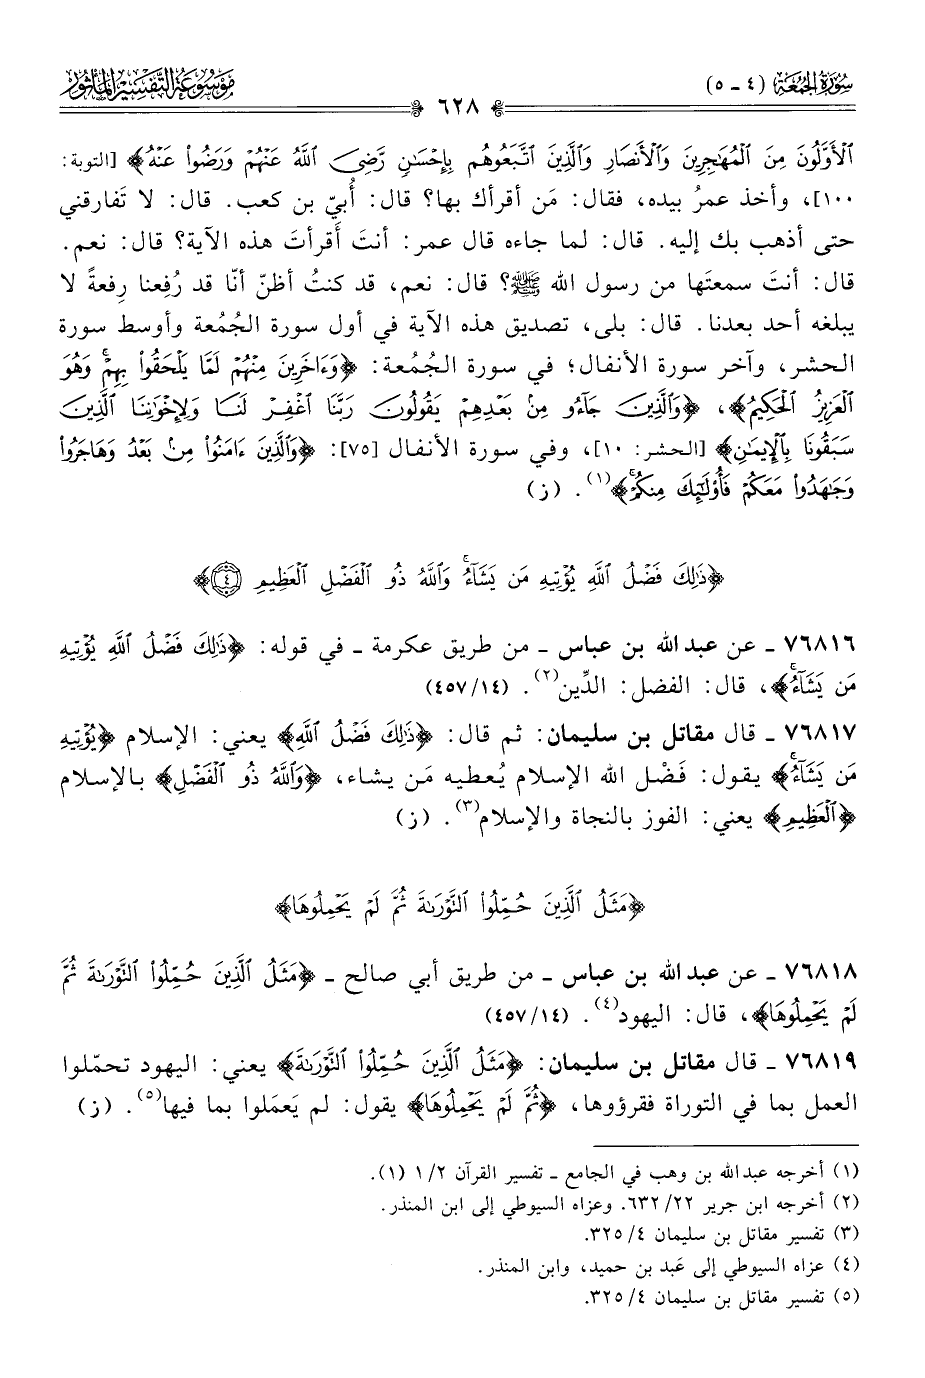 سُورَةُ الجُمُعَة (٤ - ٥)
٦٢٨
مَوْسُوعَةُ التَّفْسِيرِ المَأْثُور
ٱلْأَوَّلُونَ مِنَ ٱلْمُهَٰجِرِينَ وَٱلْأَنصَارِ وَٱلَّذِينَ ٱتَّبَعُوهُم بِإِحْسَٰنٍ رَّضِيَ ٱللَّهُ عَنْهُمْ وَرَضُوا۟ عَنْهُ﴾ [التوبة:
١٠٠]، وأخذ عمرُ بيده، فقال: مَن أقرأك بها؟ قال: أُبيّ بن كعب. قال: لا تَفارقني
حتى أذهب بك إليه. قال: لما جاءه قال عمر: أنتَ أَقرأتَ هذه الآية؟ قال: نعم.
قال: أنتَ سمعتَها من رسول الله ﷺ؟ قال: نعم، قد كنتُ أظنّ أنّا قد رُفِعنا رِفعةً لا
يبلغه أحد بعدنا. قال: بلى، تصديق هذه الآية في أول سورة الجُمُعة وأوسط سورة
الحشر، وآخر سورة الأنفال؛ في سورة الجُمُعة: ﴿وَءَاخَرِينَ مِنْهُمْ لَمَّا يَلْحَقُوا۟ بِهِمْ ۚ وَهُوَ
ٱلْعَزِيزُ ٱلْحَكِيمُ﴾، ﴿وَٱلَّذِينَ جَآءُو مِنۢ بَعْدِهِمْ يَقُولُونَ رَبَّنَا ٱغْفِرْ لَنَا وَلِإِخْوَٰنِنَا ٱلَّذِينَ
سَبَقُونَا بِٱلْإِيمَٰنِ﴾ [الحشر: ١٠]، وفي سورة الأنفال [٧٥]: ﴿وَٱلَّذِينَ ءَامَنُوا۟ مِنۢ بَعْدُ وَهَاجَرُوا۟
وَجَٰهَدُوا۟ مَعَكُمْ فَأُو۟لَٰٓئِكَ مِنكُمْ ۚ﴾(١). (ز)
﴿ذَٰلِكَ فَضْلُ ٱللَّهِ يُؤْتِيهِ مَن يَشَآءُ ۚ وَٱللَّهُ ذُو ٱلْفَضْلِ ٱلْعَظِيمِ ٤﴾
٧٦٨١٦ - عن عبد الله بن عباس - من طريق عكرمة - في قوله: ﴿ذَٰلِكَ فَضْلُ ٱللَّهِ يُؤْتِيهِ
مَن يَشَآءُ ۚ﴾، قال: الفضل: الدِّين(٢). (٤٥٧/١٤)
٧٦٨١٧ - قال مقاتل بن سليمان: ثم قال: ﴿ذَٰلِكَ فَضْلُ ٱللَّهِ﴾ يعني: الإسلام ﴿يُؤْتِيهِ
مَن يَشَآءُ ۚ﴾ يقول: فَضْل الله الإسلام يُعطيه مَن يشاء، ﴿وَٱللَّهُ ذُو ٱلْفَضْلِ﴾ بالإسلام
﴿ٱلْعَظِيمِ﴾ يعني: الفوز بالنجاة والإسلام(٣). (ز)
﴿مَثَلُ ٱلَّذِينَ حُمِّلُوا۟ ٱلتَّوْرَىٰةَ ثُمَّ لَمْ يَحْمِلُوهَا﴾
٧٦٨١٨ - عن عبد الله بن عباس - من طريق أبي صالح - ﴿مَثَلُ ٱلَّذِينَ حُمِّلُوا۟ ٱلتَّوْرَىٰةَ ثُمَّ
لَمْ يَحْمِلُوهَا﴾، قال: اليهود(٤). (٤٥٧/١٤)
٧٦٨١٩ - قال مقاتل بن سليمان: ﴿مَثَلُ ٱلَّذِينَ حُمِّلُوا۟ ٱلتَّوْرَىٰةَ﴾ يعني: اليهود تحمّلوا
العمل بما في التوراة فقرؤوها، ﴿ثُمَّ لَمْ يَحْمِلُوهَا﴾ يقول: لم يَعمَلوا بما فيها(٥). (ز)
(١) أخرجه عبد الله بن وهب في الجامع - تفسير القرآن ١/٢ (١).
(٢) أخرجه ابن جرير ٦٣٢/٢٢. وعزاه السيوطي إلى ابن المنذر.
(٣) تفسير مقاتل بن سليمان ٣٢٥/٤.
(٤) عزاه السيوطي إلى عَبد بن حميد، وابن المنذر.
(٥) تفسير مقاتل بن سليمان ٣٢٥/٤.